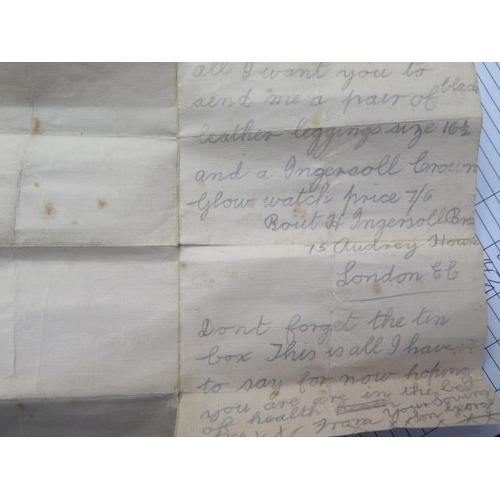 all I want you to
send me a pair of black
leather leggings size 16½
and a Ingersoll Crown
Glow watch price 7/6
Robt H Ingersoll Bro
Audrey House
London EC
Dont forget the tin
box This is all I have
to say for now hoping
you are in the best
of health
from your loving
son